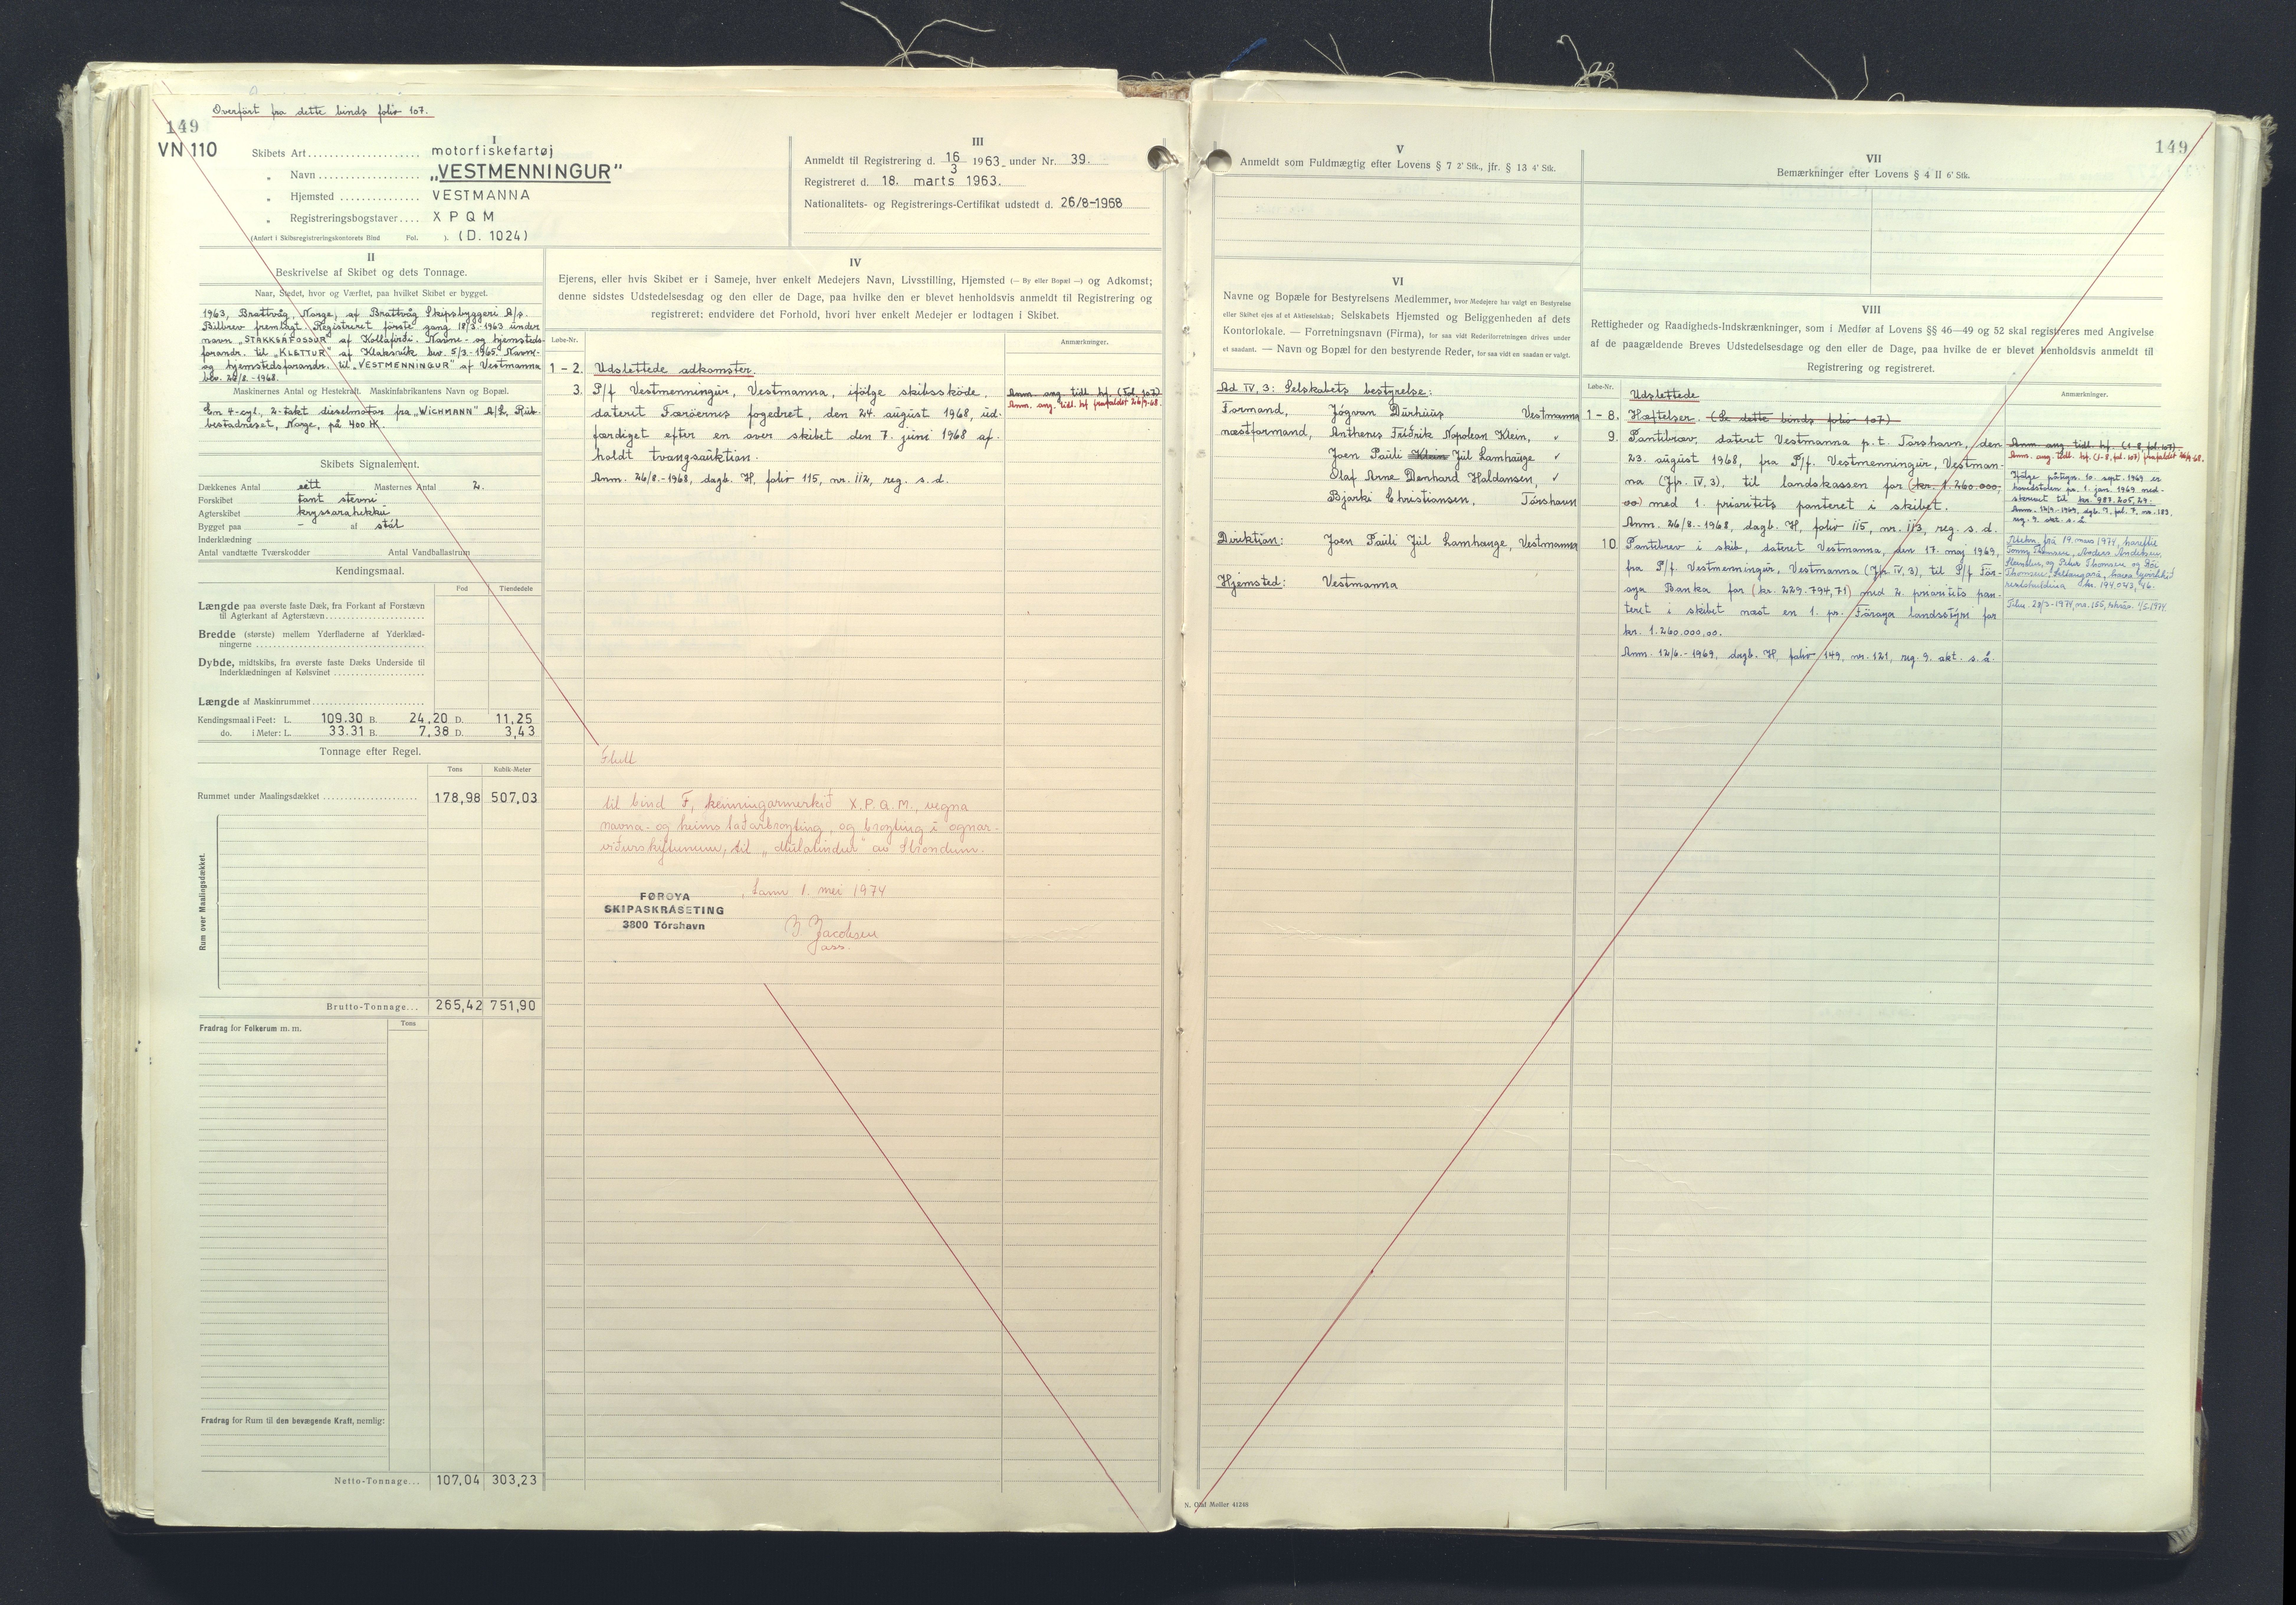 Overført fra dette binds folio 107.
149
VN 110
I
Skibets Art.................... motorfiskefartøj
„ Navn.................. „VESTMENNINGUR"
„ Hjemsted .............. VESTMANNA
„ Registreringsbogstaver.... X P Q M
(Anført i Skibsregistreringskontorets Bind Fol. ). (D. 1024)
III
Anmeldt til Registrering d. 16/3 1963 under Nr. 39.
Registreret d. 18. marts 1963.
Nationalitets- og Registrerings-Certifikat udstedt d. 26/8-1968
II
Beskrivelse af Skibet og dets Tonnage.
Naar, Stedet, hvor og Værftet, paa hvilket Skibet er bygget.
1963, Brattvåg, Norge, af Brattvåg Skipsbyggeri A/s.
Bilbrev fremlagt. Registreret første gang 18/3-1963 under
navn „STAKKSÁFOSSUR" af Kollafirði. Navne- og hjemsteds-
forandr. til „KLETTUR" af Klaksvík bev. 5/3-1965. Navne-
og hjemstedsforandr. til „VESTMENNINGUR" af Vestmanna
bev. 26/8-1968.
Maskinernes Antal og Hestekraft. Maskinfabrikantens Navn og Bopæl.
En 4-cyl., 2-takt dieselmotor fra „WICHMANN" A/S, Rub-
bestadneset, Norge, på 400 HK.
Skibets Signalement.
Dækkenes Antal eitt Masternes Antal 2.
Forskibet fant stevni
Agterskibet kryssarahekku
Bygget paa - af stál
Inderklædning
Antal vandtætte Tværskodder Antal Vandballastrum
Kendingsmaal.
Fod Tiendedele
Længde paa øverste faste Dæk, fra Forkant af Forstævn
til Agterkant af Agterstævn
Bredde (største) mellem Yderfladerne af Yderklæd-
ningerne
Dybde, midtskibs, fra øverste faste Dæks Underside til
Inderklædningen af Kølsvinet
Længde af Maskinrummet
Kendingsmaal i Feet: L. 109.30 B. 24,20 D. 11,25
do. i Meter: L. 33.31 B. 7,38 D. 3,43
Tonnage efter Regel.
Tons Kubik-Meter
Rummet under Maalingsdækket 178,98 507,03
Rum over Maalingsdækket.
Brutto-Tonnage... 265,42 751,90
Fradrag for Folkerum m. m. Tons
Fradrag for Rum til den bevægende Kraft, nemlig:
Netto-Tonnage... 107,04 303,23
IV
Ejerens, eller hvis Skibet er i Sameje, hver enkelt Medejers Navn, Livsstilling, Hjemsted (— By eller Bopæl —) og Adkomst;
denne sidstes Udstedelsesdag og den eller de Dage, paa hvilke den er blevet henholdsvis anmeldt til Registrering og
registreret; endvidere det Forhold, hvori hver enkelt Medejer er lodtagen i Skibet.
Løbe-Nr. Anmærkninger.
1 - 2. Udslettede adkomster.
3. P/f Vestmenningur, Vestmanna, ifølge skibsskøde,
dateret Færøernes fogedret, den 24. august 1968, ud-
færdiget efter en over skibet den 7. juni 1968 af-
holdt tvangsauktion.
Anm. 26/8-1968, dagb. H, folio 115, nr. 112, reg. s. d.
Anm. ang. tidl. hf. (Fol. 107)
Anm. ang. tidl. hf. frafaldet 26/9-68.
Flutt
til bind F, kenningarmerkið X.P.Q.M., vegna
navna- og heimstaðarbroyting, og broyting í ognar-
viðurskiftunum, til „Múlatindur" av Strondum.
Sama 1. mei 1974
FØROYA
SKIPASKRÁSETING
3800 Tórshavn
Jacobsen
ass.
149
V
Anmeldt som Fuldmægtig efter Lovens § 7 2' Stk., jfr. § 13 4' Stk.
VI
Navne og Bopæle for Bestyrelsens Medlemmer, hvor Medejere har valgt en Bestyrelse
eller Skibet ejes af et Aktieselskab; Selskabets Hjemsted og Beliggenheden af dets
Kontorlokale. — Forretningsnavn (Firma), for saa vidt Rederiforretningen drives under
et saadant. — Navn og Bopæl for den bestyrende Reder, for saa vidt en saadan er valgt.
Ad IV, 3: Selskabets bestyrelse:
Formand, Jógvan Dúrhuus Vestmanna
næstformand, Anthenis Fríðrik Napoleon Klein, ✓
Joen Pauli Klein Júl Lamhauge ✓
Olaf Arne Denhard Haldansen, ✓
Bjarki Christiansen, Tórshavn
Direktion: Joen Pauli Júl Lamhauge, Vestmanna
Hjemsted: Vestmanna
VII
Bemærkninger efter Lovens § 4 II 6' Stk.
VIII
Rettigheder og Raadigheds-Indskrænkninger, som i Medfør af Lovens §§ 46—49 og 52 skal registreres med Angivelse
af de paagældende Breves Udstedelsesdage og den eller de Dage, paa hvilke de er blevet henholdsvis anmeldt til
Registrering og registreret.
Løbe-Nr. Anmærkninger.
Udslettede
1 - 8. Hæftelser. (Se dette binds folio 107)
9. Pantebrev, dateret Vestmanna p.t. Tórshavn, den
23. august 1968, fra P/f. Vestmenningur, Vestman-
na (Jfr. IV, 3), til landskassen for (kr. 1.260.000,
00) med 1. prioritets panteret i skibet.
Anm. 26/8-1968, dagb. H, folio 115, nr. 113, reg. s. d.
Anm. ang. tidl. hf. (1-8, fol. 107)
Anm. ang. tidl. hf. (1-8, fol. 107) frafaldet 26/9-68.
Ifølge påtegn. 10. sept. 1969 er
hovedstolen pr. 1. jan. 1969 ned-
skrevet til kr. 987.205,29.
Anm. 12/9-1969, dgb. I, fol. 7, nr. 183,
reg. 9. okt. s. å.
10 Pantebrev i skib, dateret Vestmanna, den 17. maj 1969,
fra P/f. Vestmenningur, Vestmanna (Jfr. IV, 3), til P/f Før-
oya Banka for (kr. 229.794,71) med 2. prioritets pan-
teret i skibet næst en 1. pr. Føroya landsstýri for
kr. 1.260.000,00.
Anm. 12/6.-1969, dagb. H, folio 149, nr. 121, reg. 9. okt. s. å.
frá 19. mars 1974, hareftir
Thomsen, Anders Andreasen,
og Peter Thomsen og
Thomsen, Saltangará,
kr. 194.043,46.
Tilm. 28/3-1974, nr. 155, skrás. 1/5-1974.
N. Olaf Møller 41248